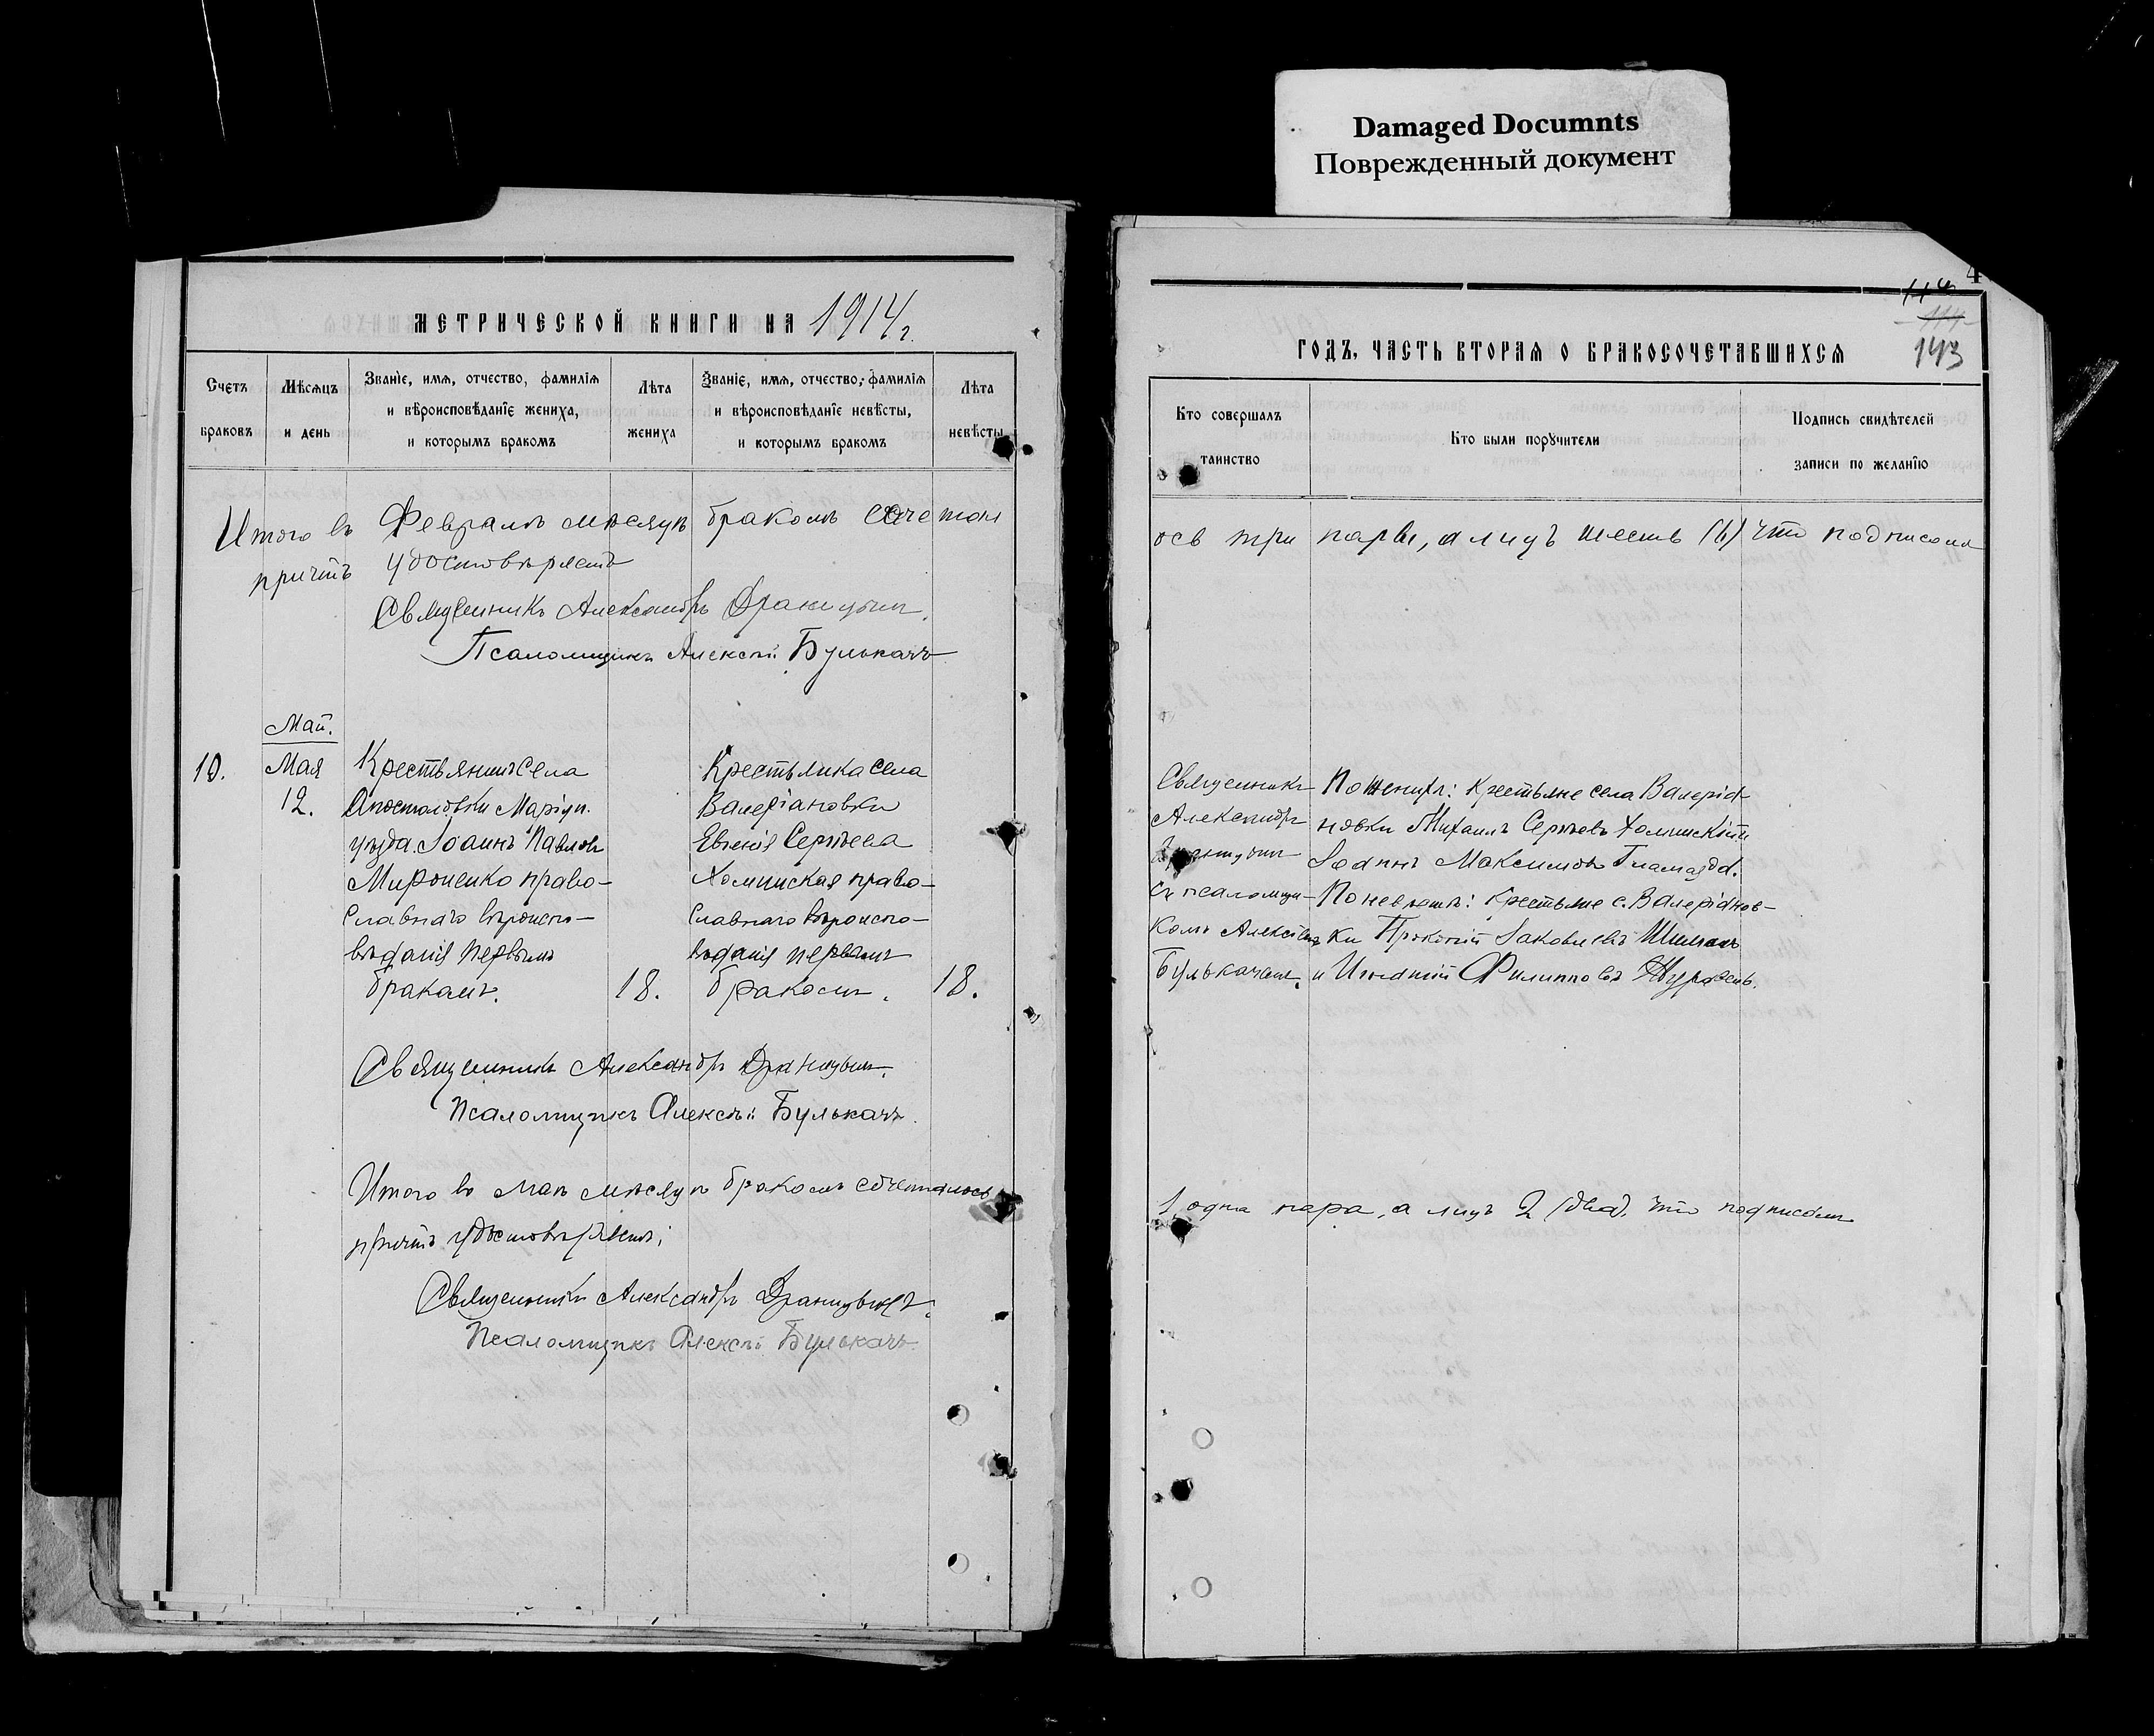 Damaged Documnts
Поврежденный документ
МЕТРИЧЕСКОЙ КНИГИ НА 1914 г.
Счетъ браковъ
Мѣсяцъ и день
Званіе, имя, отчество, фамилія и вѣроисповѣданіе жениха, и которымъ бракомъ
Лѣта жениха
Званіе, имя, отчество, фамилія и вѣроисповѣданіе невѣсты, и которымъ бракомъ
Лѣта невѣсты
Итого въ Февралѣ мѣсяцѣ бракомъ сочетал
причтъ удостовѣряетъ
Священникъ Александръ
Псаломщикъ Алексѣй Булькачъ
Май.
10.
Мая
12.
Крестьянинъ села
Апостоловки Маріуп.
уѣзда Іоаннъ Павлов
Мироненко право-
славнаго вѣроиспо-
вѣданія первымъ
бракомъ.
18.
Крестьянка села
Валеріановки
Евгенія Сергѣева
Холминская право-
славнаго вѣроиспо-
вѣданія первымъ
бракомъ.
18.
Священникъ Александръ
Псаломщикъ Алексѣй Булькачъ
Итого въ маѣ мѣсяцѣ бракомъ сочеталось
причтъ удостовѣряетъ;
Священникъ Александръ
Псаломщикъ Алексѣй Булькачъ
4
114
143
ГОДЪ, ЧАСТЬ ВТОРАЯ О БРАКОСОЧЕТАВШИХСЯ
Кто совершалъ таинство
Кто были поручители
Подпись свидѣтелей записи по желанію
ось три пары, а лицъ шесть (6) что подписали
Священникъ
Александръ
съ псаломщи-
комъ Алексѣемъ
Булькачемъ.
По женихѣ: крестьяне села Валеріа-
новки Михаилъ Сергѣевъ Холминскій и
Іоаннъ Максимовъ
По невѣстѣ: крестьяне с. Валеріанов-
ки Прокопій Іаковлевъ
и Игнатій Филипповъ Журавель.
1 одна пара, а лицъ 2 (два). что подписали